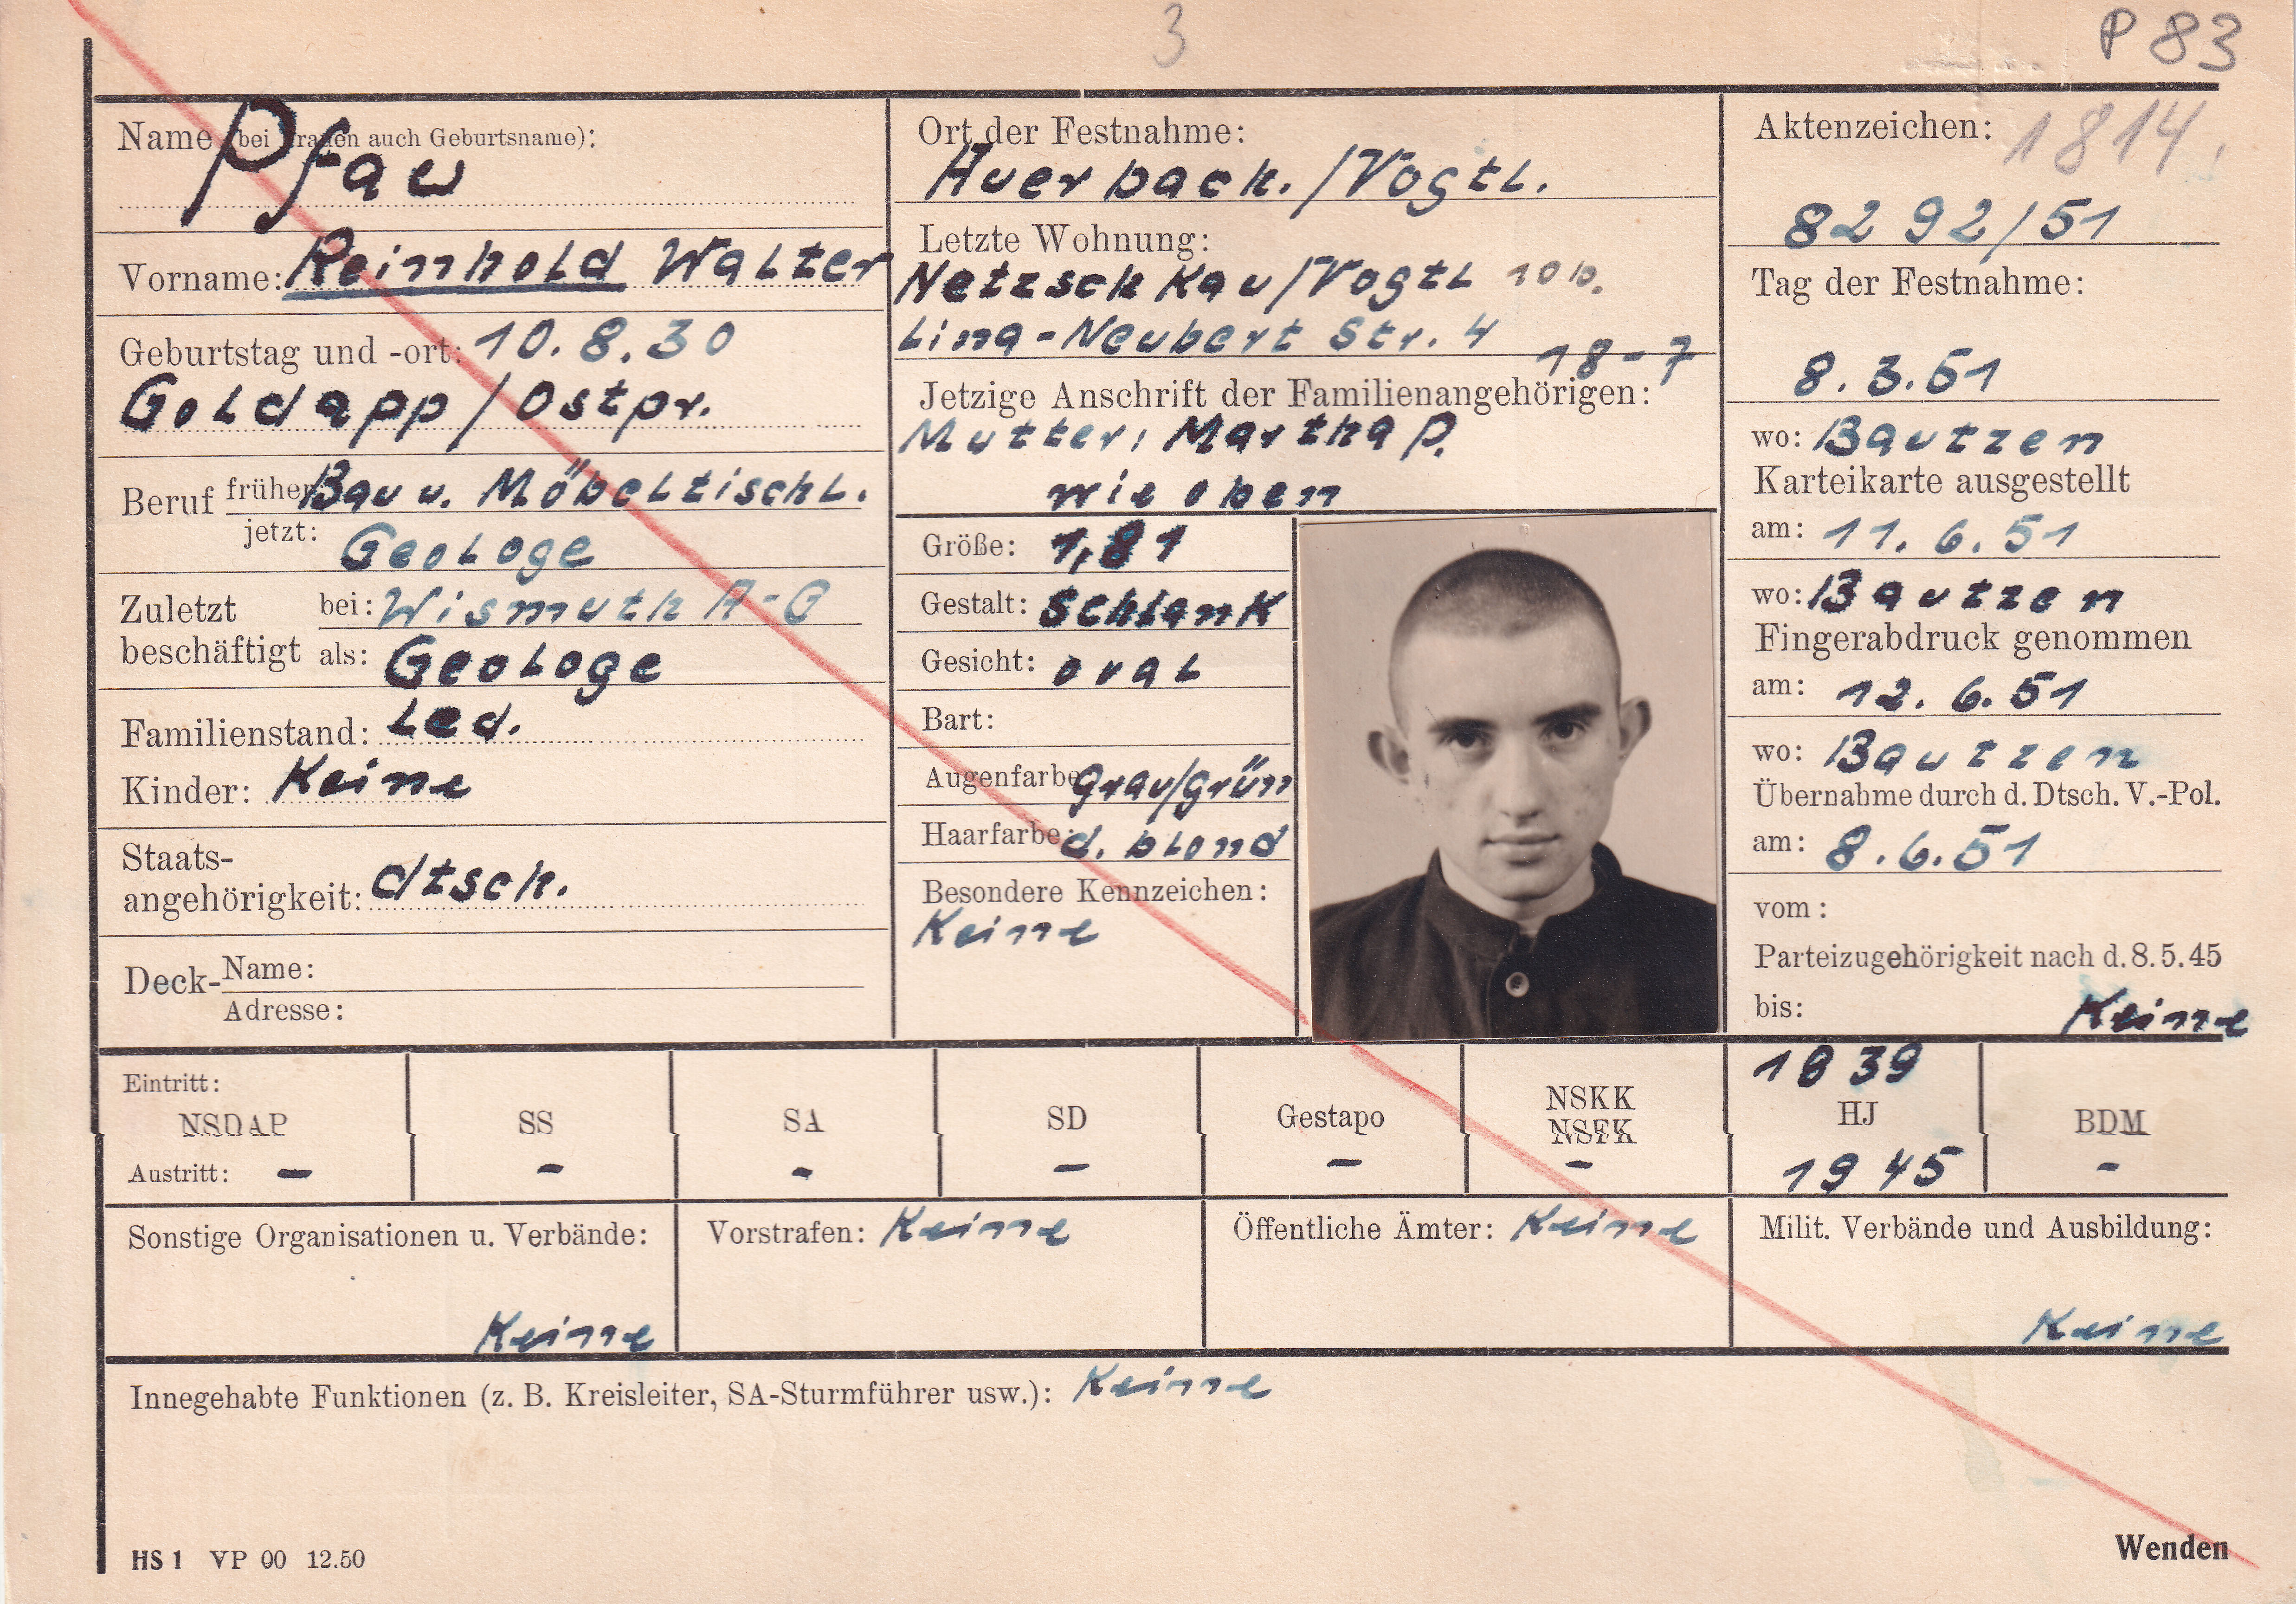 3
P 83
Name (bei Frauen auch Geburtsname):
Pfau
Vorname: Reinhold Walter
Geburtstag und -ort: 10.8.30
Goldapp/Ostpr.
Beruf früher Bau u. Möbeltischl.
jetzt:
Geologe
Zuletzt beschäftigt bei: Wismuth A-G
als: Geologe
Familienstand: Led.
Kinder: Keine
Staats-
angehörigkeit: dtsch.
Deck- Name:
Adresse:
Ort der Festnahme:
Auerbach./Vogtl.
Letzte Wohnung:
Netzschkau/Vogtl 10b.
Lina-Neubert Str. 4
18-7
Jetzige Anschrift der Familienangehörigen:
Mutter: Martha P.
wie oben
Größe: 1,81
Gestalt: Schlank
Gesicht: oval
Bart:
Augenfarbe grau/grün
Haarfarbe: d. blond
Besondere Kennzeichen:
Keine
Aktenzeichen: 1814
8292/51
Tag der Festnahme:
8.3.51
wo: Bautzen
Karteikarte ausgestellt
am: 11.6.51
wo: Bautzen
Fingerabdruck genommen
am: 12.6.51
wo: Bautzen
Übernahme durch d. Dtsch. V.-Pol.
am: 8.6.51
vom:
Parteizugehörigkeit nach d. 8.5.45
bis: Keine
Eintritt: 1939
NSDAP SS SA SD Gestapo NSKK HJ BDM
NSFK
Austritt: - - - - - - 1945 -
Sonstige Organisationen u. Verbände:
Keine
Vorstrafen: Keine
Öffentliche Ämter: Keine
Milit. Verbände und Ausbildung:
Keine
Innegehabte Funktionen (z. B. Kreisleiter, SA-Sturmführer usw.): Keine
HS 1 VP 00 12.50
Wenden